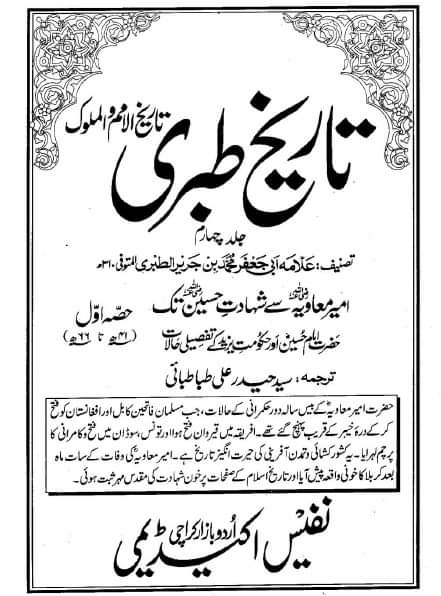 تاریخ الامم والملوک
تاریخ طبری
جلد چہارم
تصنیف: علامہ ابی جعفر محمد بن جریر الطبری المتوفی ۳۱۰ھ
امیر معاویہؓ سے شہادتِ حسینؓ تک
حصہ اول
حضرت امام حسینؓ اور حکومتِ یزید کے تفصیلی حالات
(۴۱ھ تا ۶۶ھ)
ترجمہ: سید حیدر علی طباطبائی
حضرت امیر معاویہؓ کے بیس سالہ دور حکمرانی کے حالات، جب مسلمان فاتحین کابل اور افغانستان کو فتح
کر کے درۂ خیبر کے قریب پہنچ گئے تھے۔ افریقہ میں قیروان فتح ہوا اور تونس، سوڈان میں فتح و کامرانی کا
پرچم لہرایا۔ یہ کشور کشائی و تمدن آفرینی کی حیرت انگیز تاریخ ہے۔ امیر معاویہؓ کی وفات کے سات ماہ
بعد کربلا کا خونی واقعہ پیش آیا اور تاریخ اسلام کے صفحات پر خون شہادت کی مقدس مہر ثبت ہوئی۔
نفیس اکیڈیمی
اُردو بازار کراچی